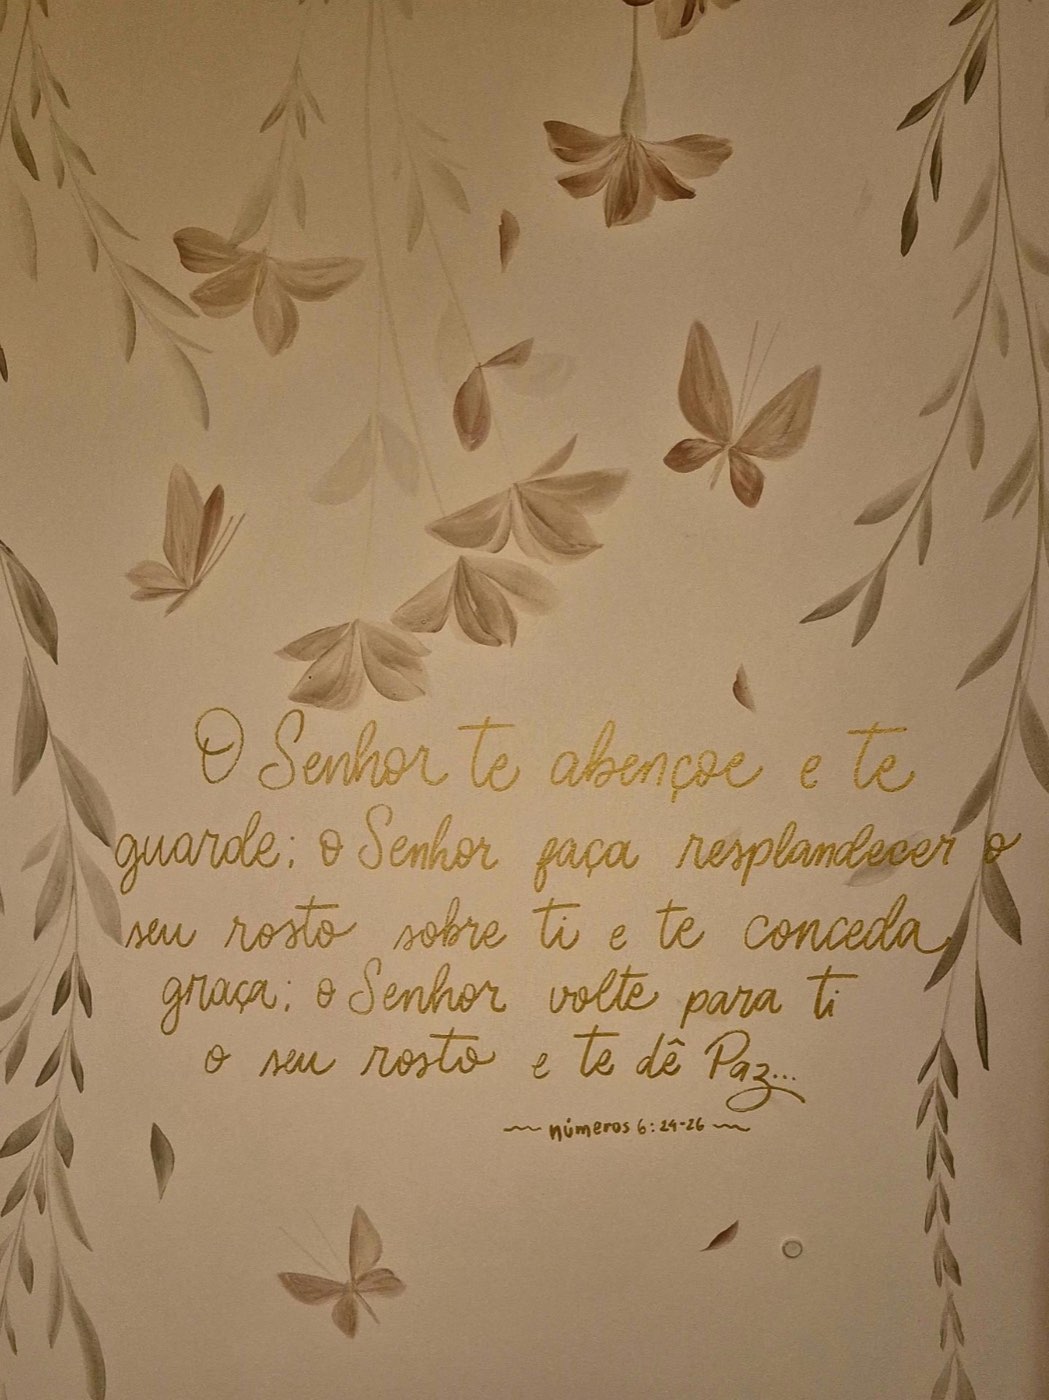 O Senhor te abençoe e te
guarde; o Senhor faça resplandecer o
seu rosto sobre ti e te conceda
graça; o Senhor volte para ti
o seu rosto e te dê Paz...
~ números 6:24-26 ~